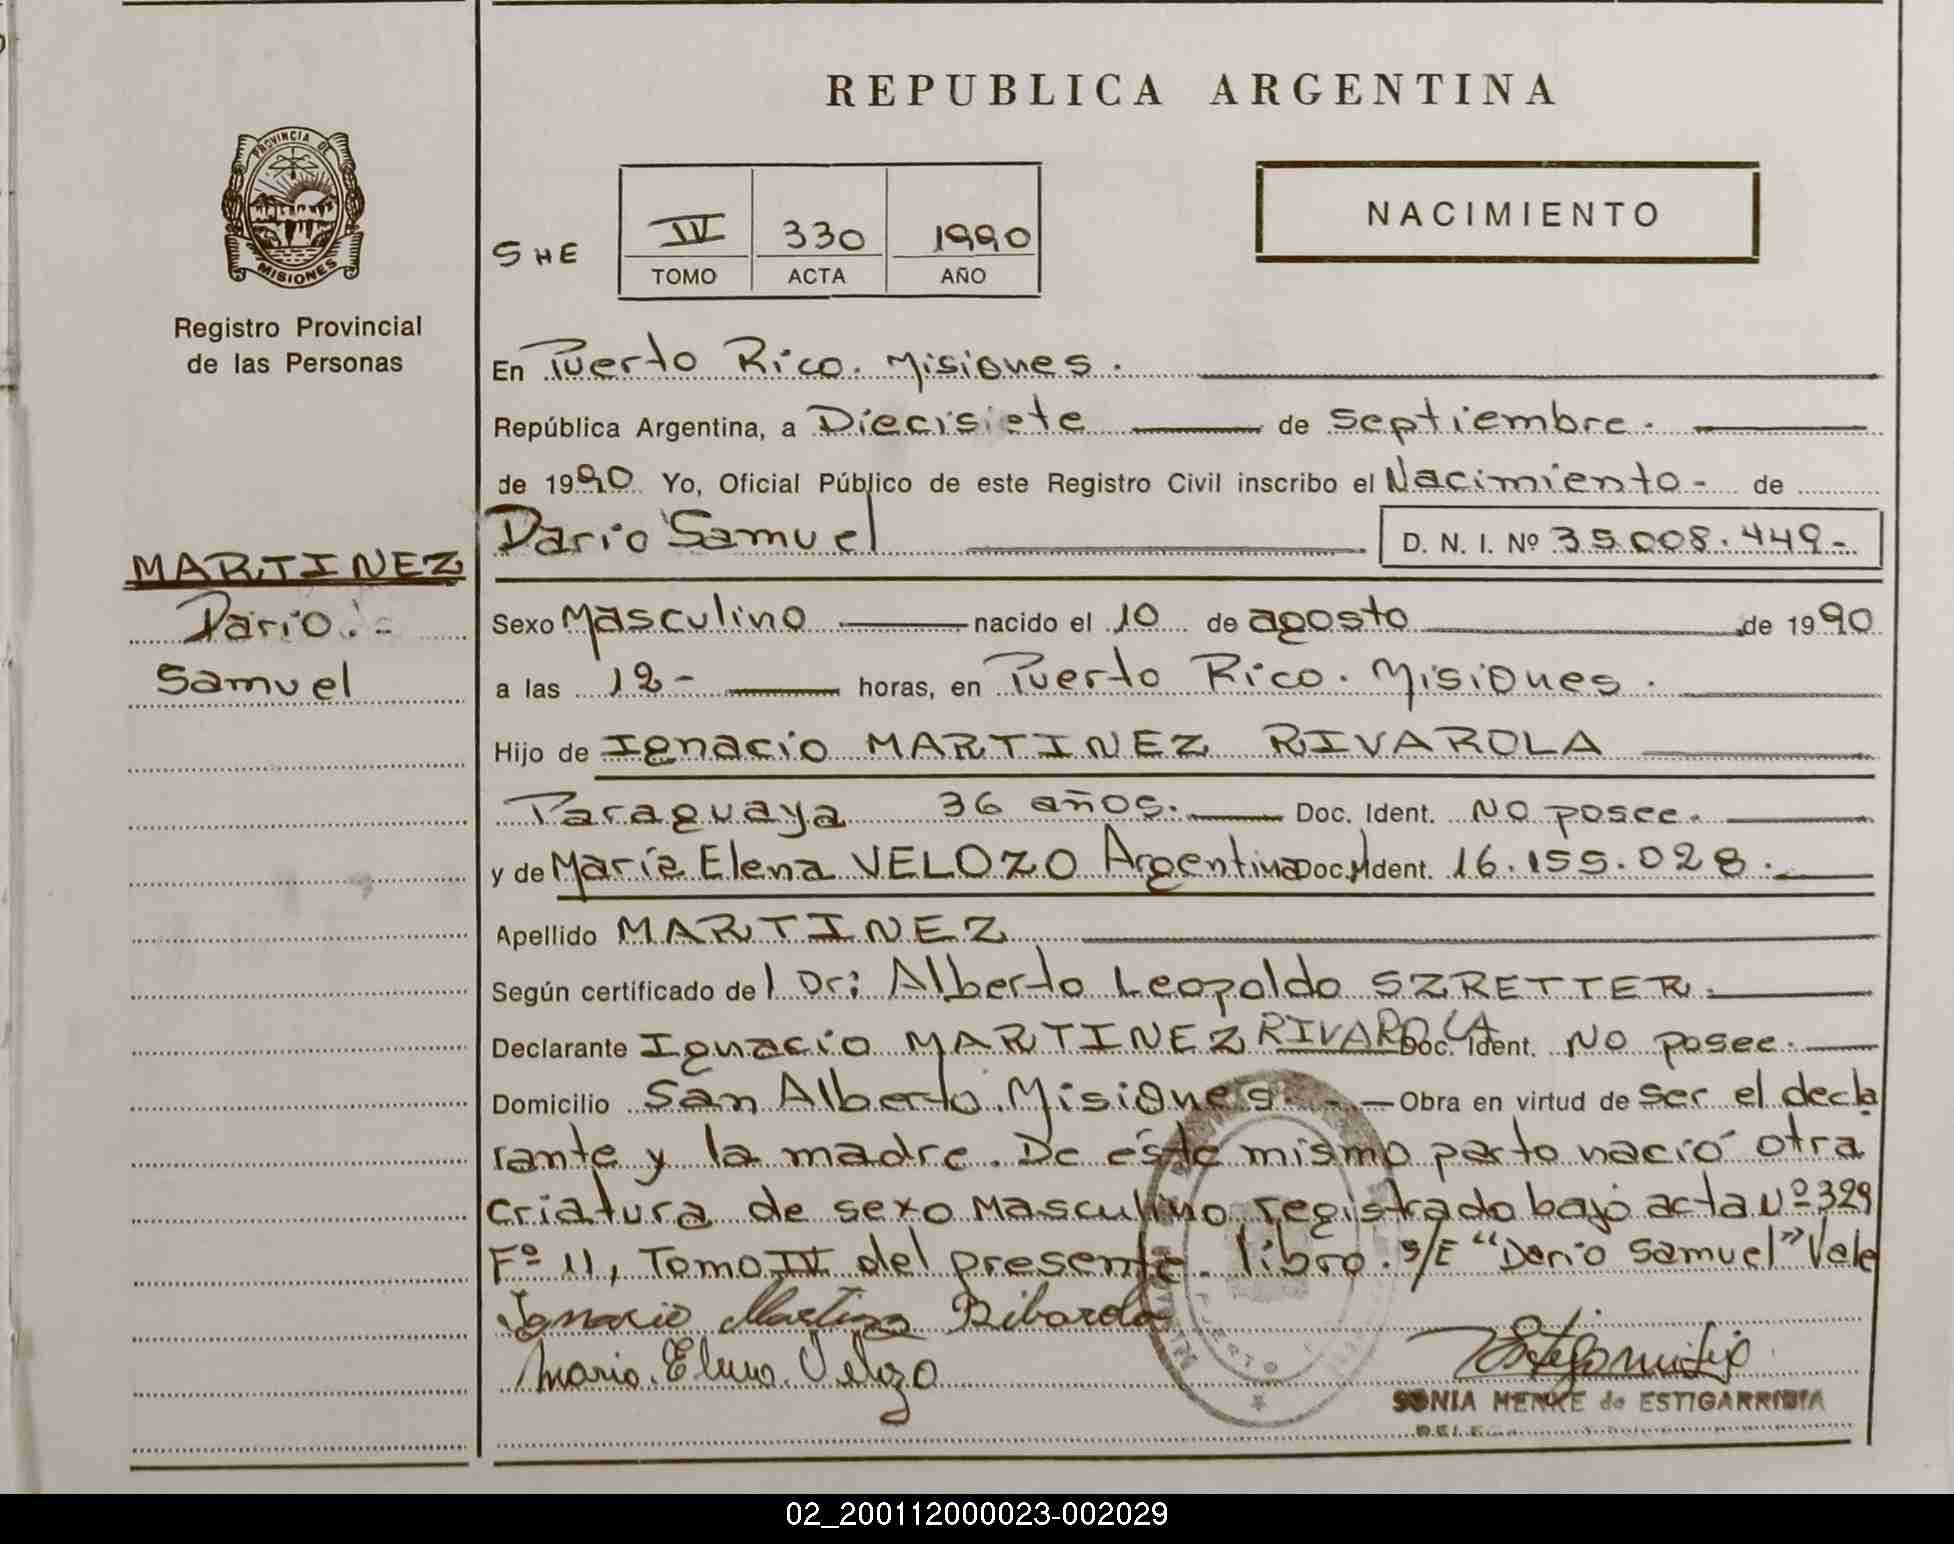 REPUBLICA ARGENTINA
PROVINCIA DE
MISIONES
Registro Provincial
de las Personas
S H E
IV 330 1990
TOMO ACTA AÑO
NACIMIENTO
En Puerto Rico. Misiones.
República Argentina, a Diecisiete de Septiembre.
de 1990 Yo, Oficial Público de este Registro Civil inscribo el Nacimiento - de
Dario Samuel D. N. I. Nº 35.008.449-
MARTINEZ
Dario.-
Samuel
Sexo Masculino nacido el 10 de agosto de 1990
a las 12- horas, en Puerto Rico. Misiones.
Hijo de Ignacio MARTINEZ RIVAROLA
Paraguaya 36 años. Doc. Ident. No posee.
y de María Elena VELOZO Argentina Doc. Ident. 16.155.028.
Apellido MARTINEZ
Según certificado del Dr: Alberto Leopoldo SZRETTER.
Declarante Ignacio MARTINEZ RIVAROLA Doc. Ident. No posee.
Domicilio San Alberto. Misiones. - Obra en virtud de ser el decla
rante y la madre. De éste mismo parto nació otra
criatura de sexo Masculino registrado bajo acta Nº 329
Fº 11, Tomo IV del presente libro. S/E "Dario Samuel" Vale
Ignacio Martinez Ribarola
Maria Elena Velozo
SONIA MENKE de ESTIGARRIBIA
02_200112000023-002029